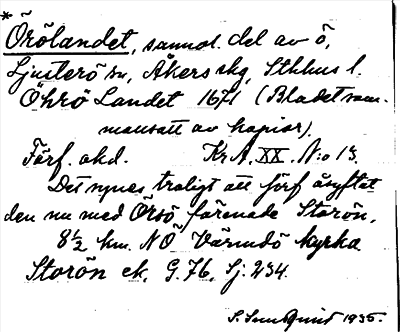 * Örölandet, sannol. del av ö,
Ljusterö sn, Åkers skg, Sthlms l.
Öhrö Landet 1671 (Bladet sam-
mansatt av kopior).
Förf. okd. Kr.A. XX. N:o 13.
Det synes troligt att förf åsyftat
den nu med Örsö förenade Storön,
8½ km. NÖ Värmdö kyrka
Storön ek. G.76, Sj. 234.
1935.